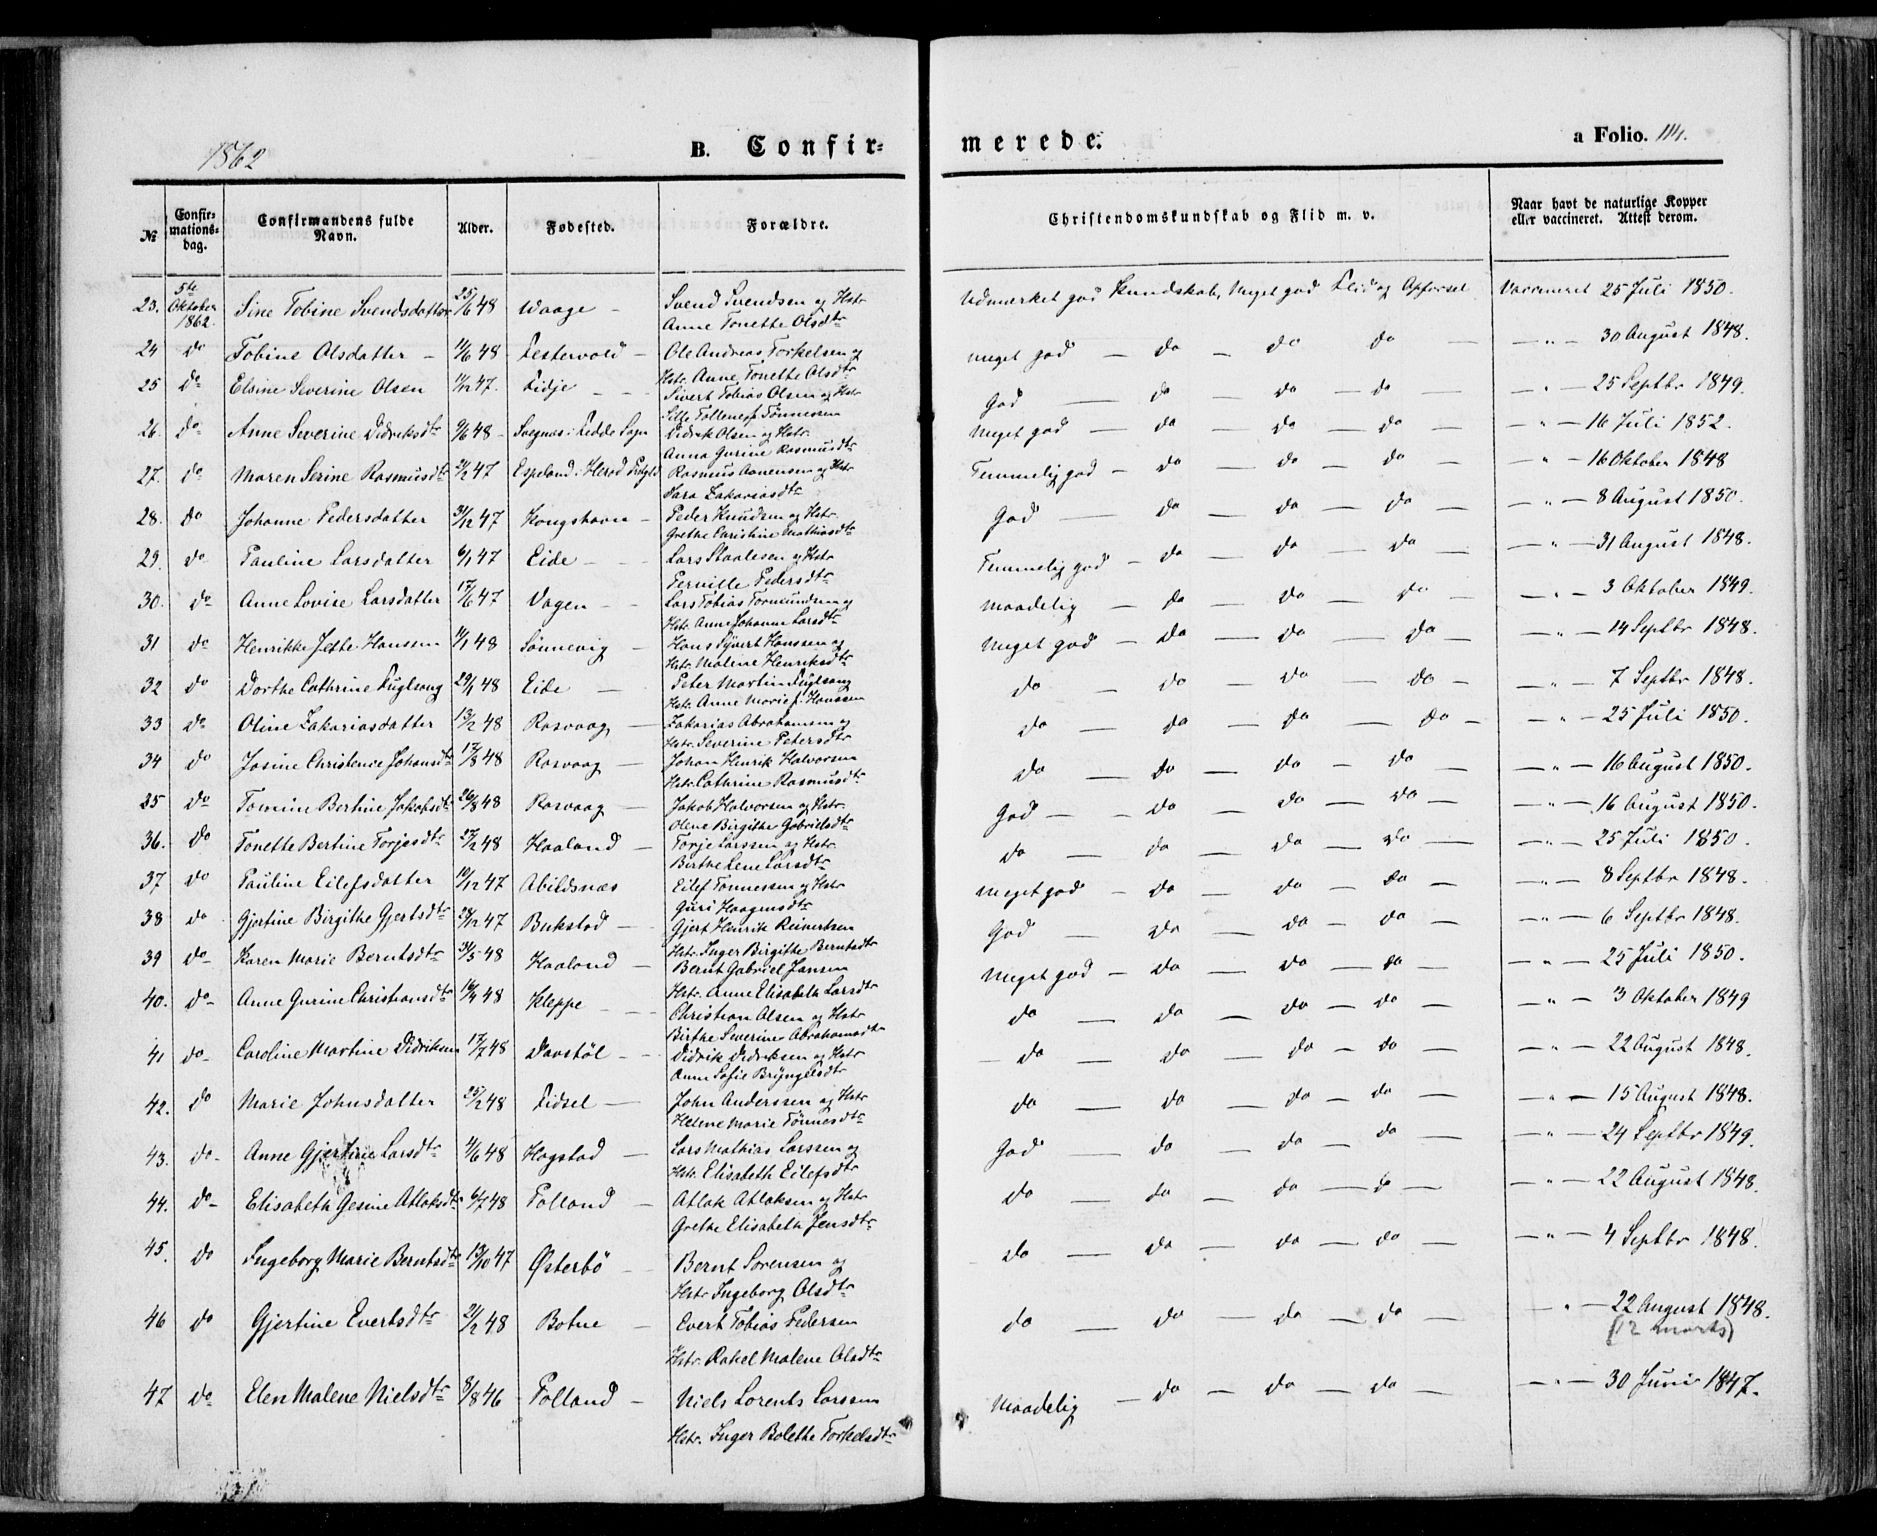 1862
B. Confir=
merede.
a Folio. 114.
No
Confir=
mations=
dag.
Confirmandens fulde
Navn.
Alder.
Fødested.
Forældre.
Christendomskundskab og Flid m. v.
Naar havt de naturlige Kopper
eller vaccineret. Attest derom.
23. 5te Oktober 1862. Sine Tobine Svendsdatter 25/6 48 Waage - Svend Svendsen og Hstr Udmærket god Kundskab, Meget god Flid og Opførsel Vaccineret 25 Juli 1850.
Anne Tonette Olsdtr
24 do Tobine Olsdatter - 11/6 48 Festervold - Ole Andreas Torkelsen og Meget god - do - do do - - " - 30 August 1848.
Hstr. Anne Tonette Olsdtr
25 do Elsine Severine Olsen 11/12 47. Fidje - - Sivert Tobias Olsen og Hstr God - do - do - do - - " - 25 Septbr 1849.
Sille Tollensf. Tønnessen
26. do Anne Severine Didriksdtr 9/6 48 - Svegnæs i Fedde Sogn Didrik Olsen og Hstr. Meget god - do - do - do - - " - 16 Juli 1852.
Anna Gurine Rasmusdtr
27. do Maren Serine Rasmusdtr 2/2 47 Espeland i Herad Rasmus Aanensen og Hstr Temmelig god - do - do - do - - " - 16 Oktober 1848
Sara Zakariasdtr
28. do Johanne Pedersdatter 31/12 47 Kongshavn - Peder Knudsen og Hstr. God - do - do - do - - " - 8 August 1850.
Grethe Christine Mathiasdtr
29. do Pauline Larsdatter 6/1 47 Eide - - Lars Staalesen og Hstr Temmelig god - do - do - do - - " - 31 August 1848.
Pernille Pedersdtr
30. do Anne Lovise Larsdatter 17/6 47 Vagen - - Lars Tobias Tormundsen og Maadelig - do - do - do - - " - 3 Oktober 1849.
Hstr. Anne Johanne Larsdtr
31 do Henrikke Jette Hansen 11/1 48 Sønnevig - Hans Syvert Hanssen og Meget god - do - do - do - - " - 14 Septbr 1848.
Hstr. Malene Henriksdtr
32 do Dorthe Cathrine Fuglsang 29/1 48 Eide - Peter Martin Fuglsang do - do - do - do - - " - 7 Septbr 1848.
Hstr. Anne Marie f. Hanssen
33 do Oline Zakariasdatter 13/2 48 Rasvaag - Zakarias Abrahamsen og do - do - do - do - - " - 25 Juli 1850.
Hstr. Severine Petersdtr
34 do Josine Christence Johansdtr 17/3 48 Rasvaag - Johan Henrik Halvorsen do - do - do - do - - " - 16 August 1850.
Hstr. Cathrine Rasmusdtr
35 do Tomine Bertine Jakobsdtr 26/3 48 Rasvaag - Jakob Halvorsen og Hstr. God - - do - do - do - - " - 16 August 1850.
Olene Birgithe Gabrielsdtr
36. do Tonette Bertine Torjesdtr 27/2 48 Haaland - Torje Larssen og Hstr. do - do - do - do - - " - 25 Juli 1850.
Birthe Lene Larsdtr
37 do Pauline Eilefsdatter 19/12 47 Abildsnæs Eilef Tønnessen og Hstr Meget god - do - do - do - - " - 8 Septbr 1848.
Guri Haagensdtr
38 do Gjertine Birgithe Gjertsdtr 28/12 47 Bukstad - Gjert Henrik Reinertsen God - do - do - do - - " - 6 Septbr 1848.
Hstr. Inger Birgithe Berntsdtr
39 do Karen Marie Berntsdtr 31/5 48 Haaland - Bernt Gabriel Jansen Meget god - do - do - do - - " - 25 Juli 1850.
Hstr. Anne Elisabeth Larsdtr
40. do Anne Gurine Christiansdtr 16/4 48 Kleppe - - Christian Olsen og Hstr do - do - do - do - - " - 3 Oktober 1849
Birthe Severine Abrahamsdtr
41 do Caroline Martine Didriksen 17/7 48 Davstøl - - Didrik Didriksen og Hstr - do - do - do - do - - " - 22 August 1848.
Anne Sofie Bryngelsdtr
42. do Marie Johnsdatter 25/2 48 Fidsel - John Anderssen og Hstr do - do - do - do - - " - 15 August 1848.
Helene Marie Tønnesdtr
43. do Anne Gjertine Larsdtr 4/6 48 Hagstad - Lars Mathias Larssen og God - do - do - do - - " - 24 Septbr 1849.
Hstr. Elisabeth Eilefsdtr
44. do Elisabeth Gesine Atlaksdtr 6/7 48 Tolland - Atlak Atlaksen og Hstr do - do - do - do - - " - 22 August 1848.
Grethe Elisabeth Jensdtr
45. do Ingeborg Marie Berntsdtr 13/10 47 Østerbö - Bernt Sørensen og do - do - do - do - - " - 4 Septbr 1848.
Hstr Ingeborg Olsdtr
46 do Gjertine Evertsdtr 21/2 48 Botne - Evert Tobias Pedersen do - do - do - do - " - 22 August 1848.
(12 Marts)
Hstr. Rakel Malene Olsdtr
47 do Elen Malene Nielsdtr 8/8 46 Tolland - Niels Lorents Larssen Maadelig - do - do - do - - " - 30 Juni 1847.
Hstr. Inger Bolette Torkelsdtr